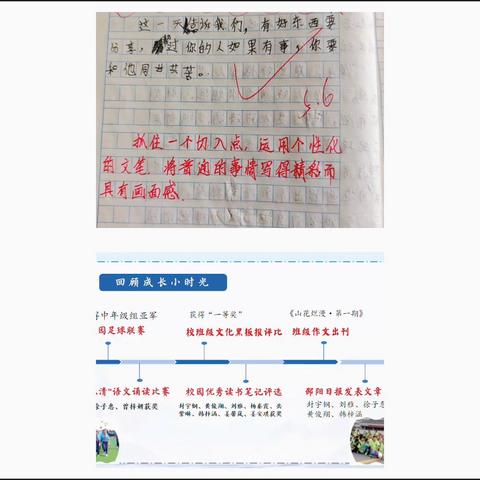 这一天告诉我们，有好东西要
分享，过你的人如果有事，你要
和他同甘共苦。
5.6
抓住一个切入点，运用个性化
的文笔，将普通的事情写得精彩而
具有画面感.
回顾成长小时光
中年级组亚军
获得“一等奖”
《山花烂漫·第一期》
园足球联赛
校班级文化黑板报评比
班级作文出刊
清”语文诵读比赛
校园优秀读书笔记评选
邵阳日报发表文章
徐子恩、曾梓妍获奖
封宇钢、黄俊翔、刘雅、杨睿霞、
紫琳、韩梓涵、姜馨岚、姜安琪获奖
封宇钢、刘雅、徐子
黄俊翔、韩梓涵